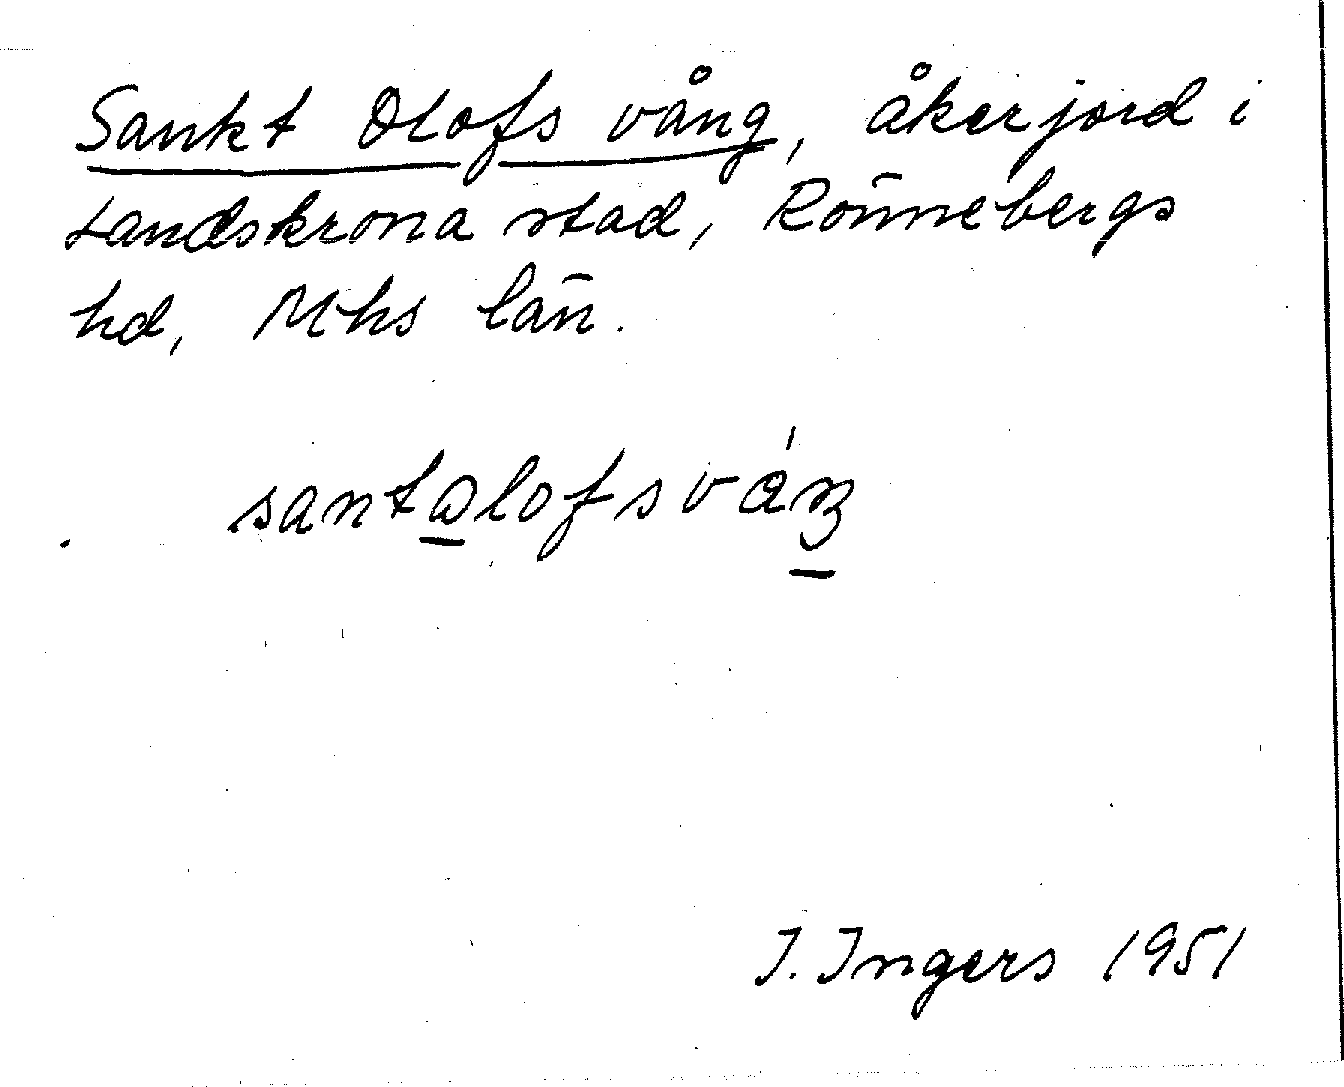 Sankt Olofs vång, åkerjord i
Landskrona stad, Rönnebergs
hd, Mhs län.
santɷlofsváŋ
I. Ingers 1951